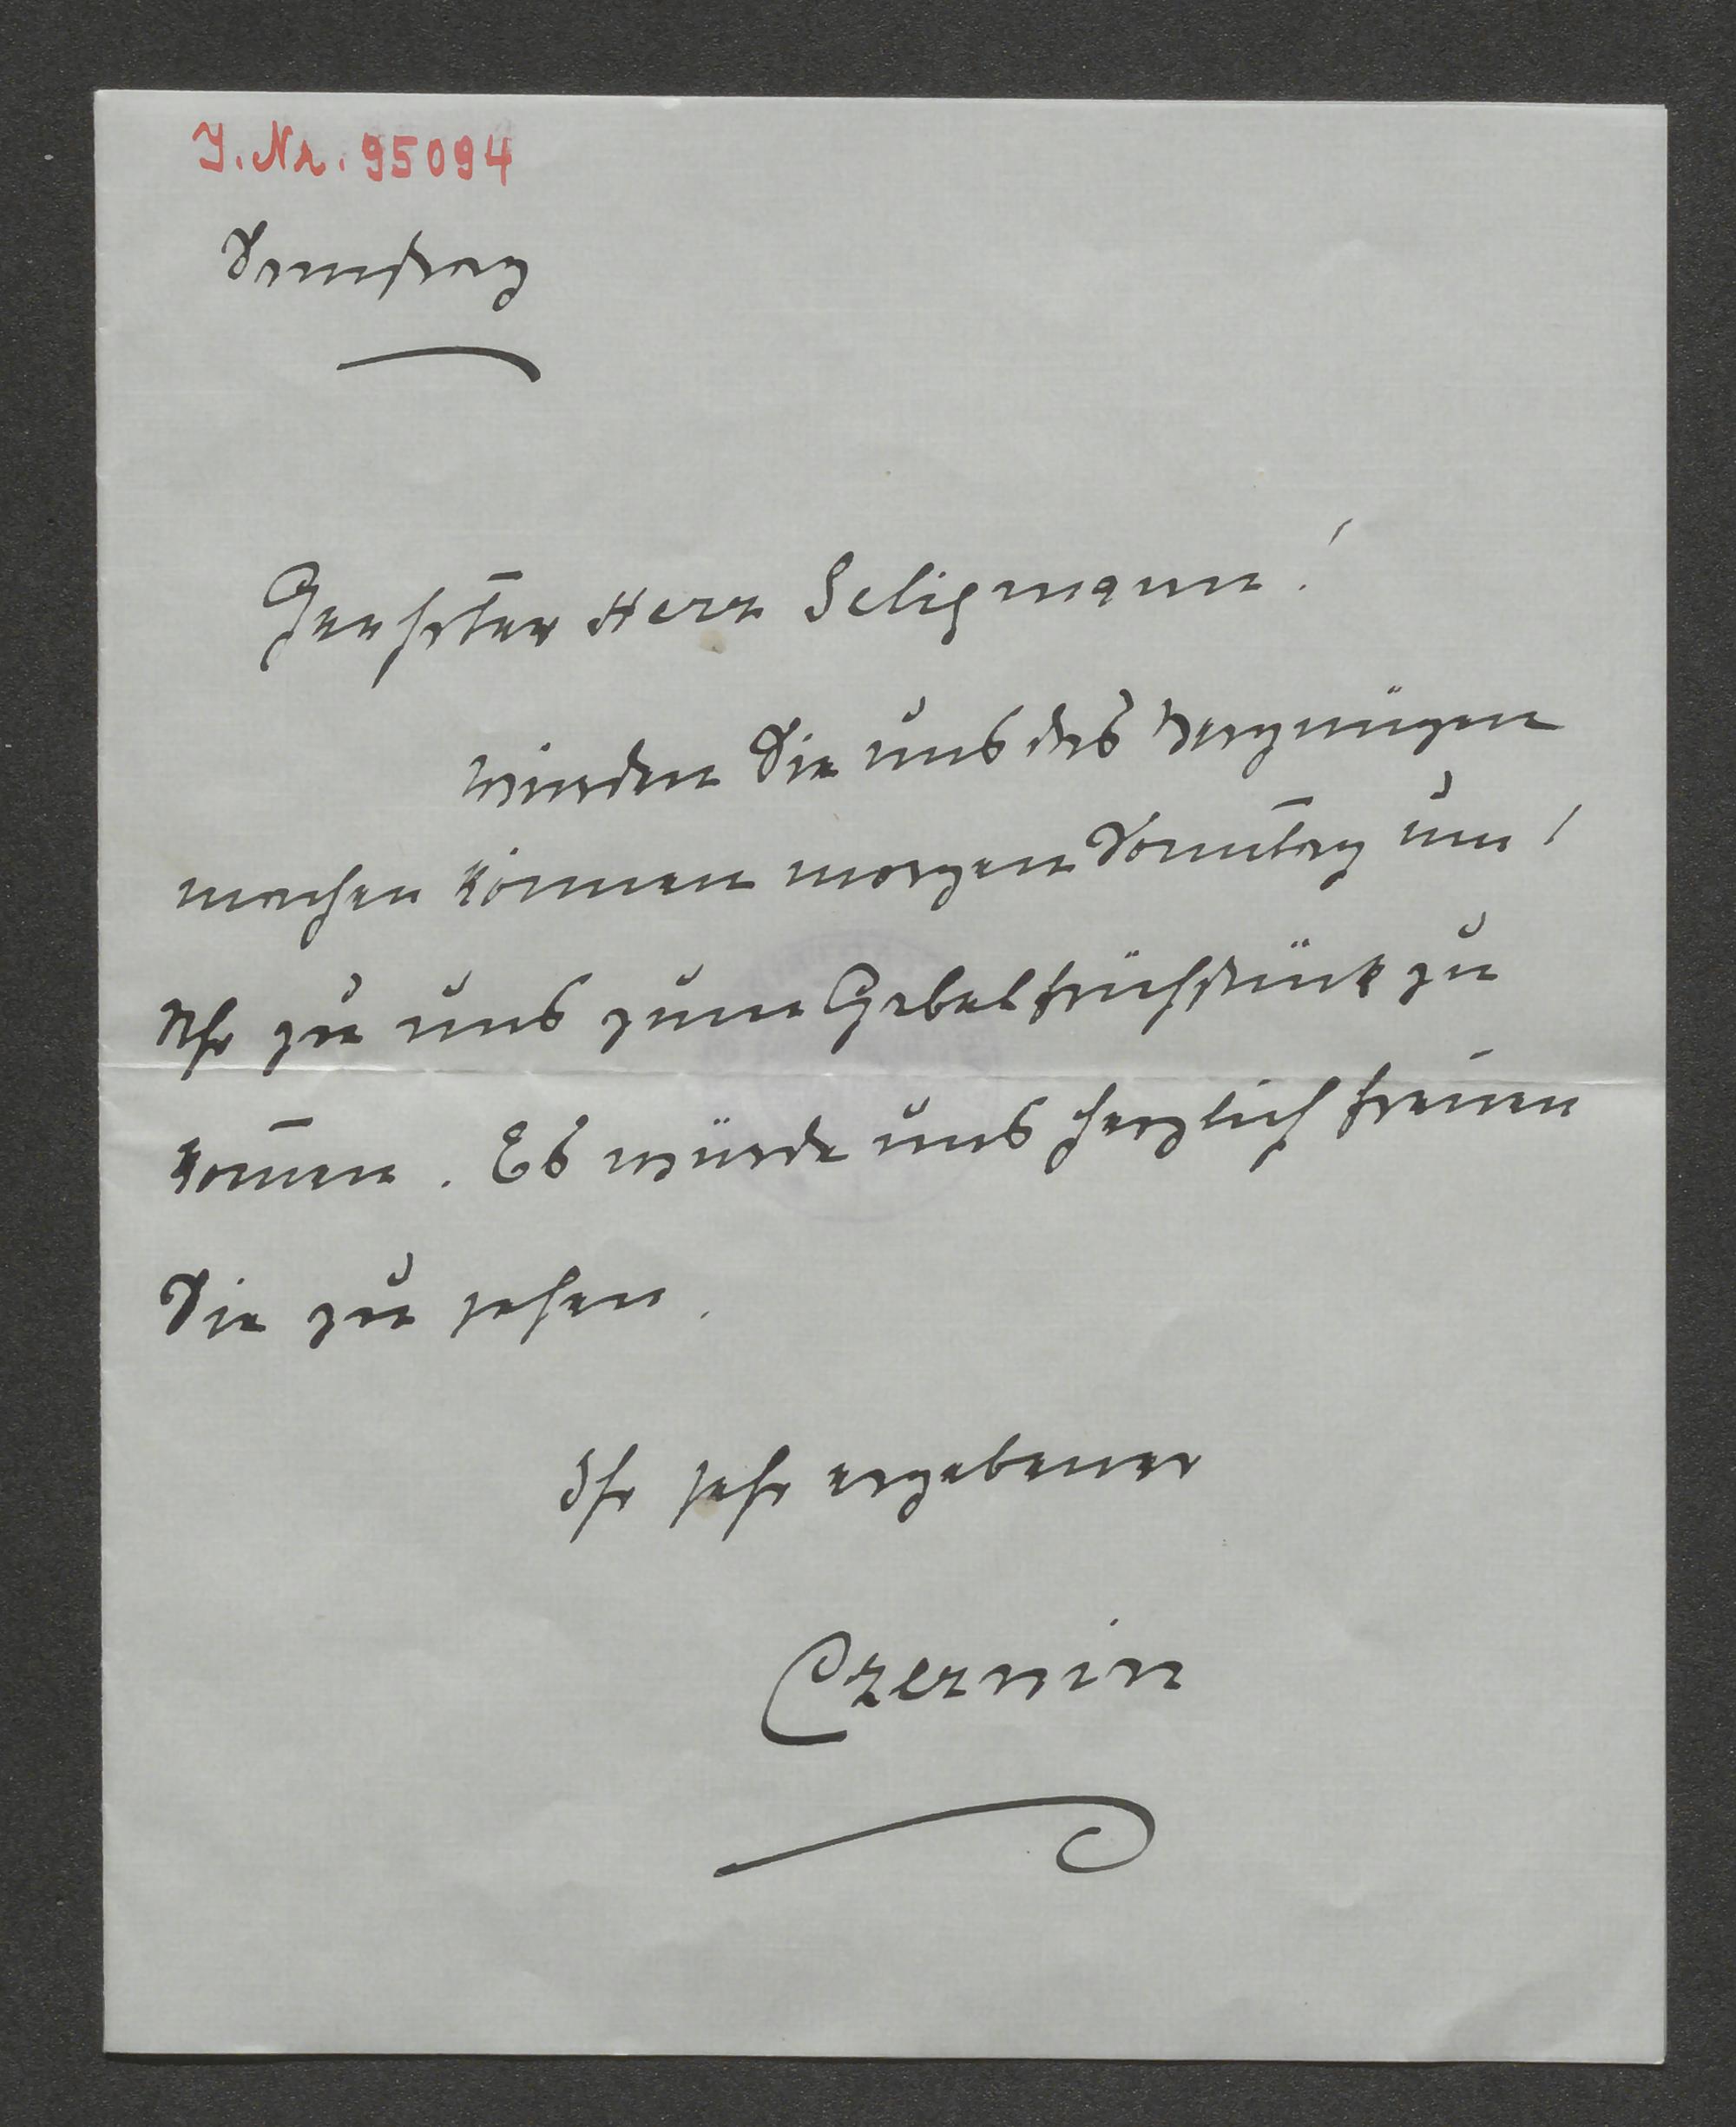 J. Nr. 95094
Samstag
Geehrter Herr Seligmann!
würden Sie uns das Vergnügen
machen können morgen Sonntag um 1
Uhr zu uns zum Gabelfrühstück zu
kom̄en. Es würde uns herzlich freuen
Sie zu sehen.
Ihr sehr ergebener
Czernin